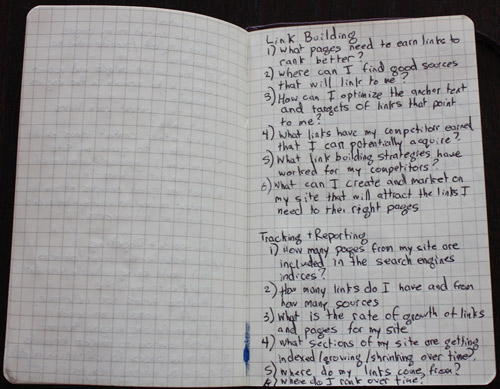 Link Building
1) What pages need to earn links to
rank better?
2) Where can I find good sources
that will link to me?
3) How can I optimize the anchor text
and targets of links that point
to me?
4) What links have my competitors earned
that I can potentially acquire?
5) What link building strategies have
worked for my competitors?
6) What can I create and market on
my site that will attract the links I
need to the right pages
Tracking + Reporting
1) How many pages from my site are
included in the search engines
indices?
2) How many links do I have and from
how many sources
3) What is the rate of growth of links
and pages for my site
4) What sections of my site are getting
indexed/growing/shrinking over time?
5) Where do my links come from?
6) Where do I rank over time?